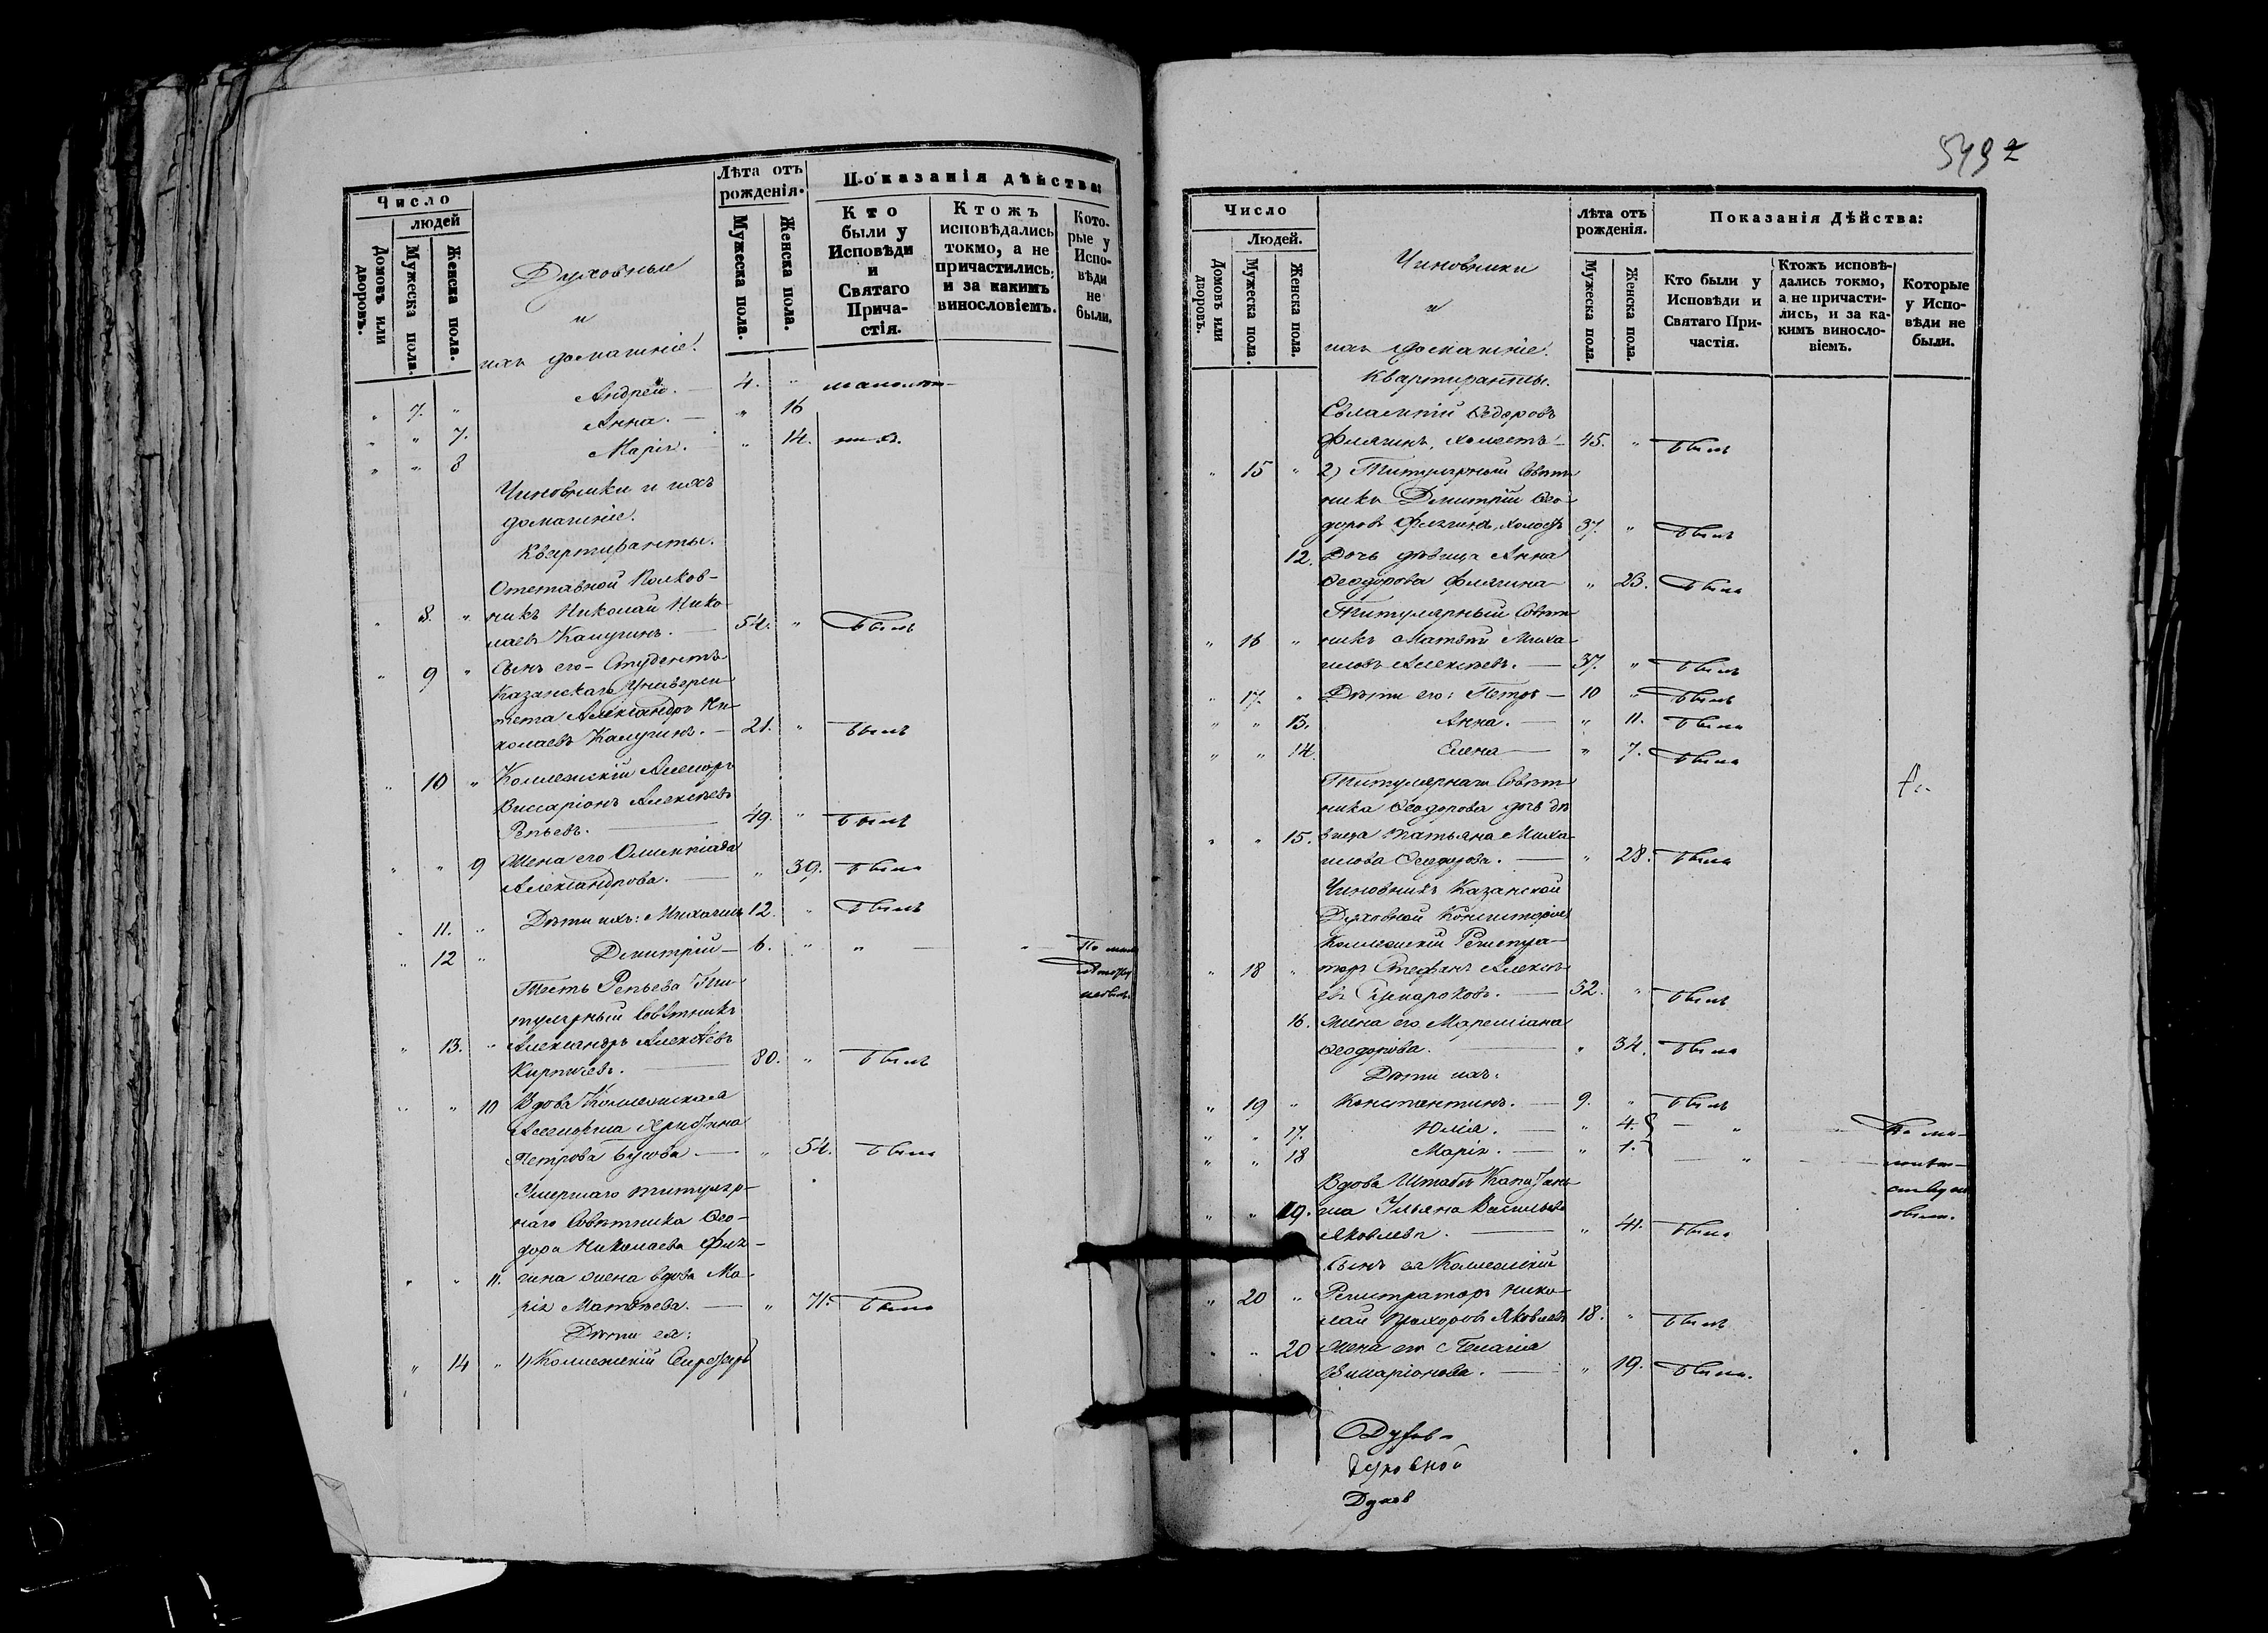 Число
людей
Домовъ или дворовъ.
Мужеска пола.
Женска пола.
Духовные
и
ихъ домашніе.
Лѣта отъ рожденія.
Мужеска пола.
Женска пола.
Показанія дѣйства:
Кто были у Исповѣди и Святаго Прича-стія.
Ктожъ исповѣдались токмо, а не причастились, и за какимъ винословіемъ.
Кото-рые у Испо-вѣди не были.
" 7. " Андрей. — 4. "
" " 7. Анна. — " 16
" " 8 Марія. " 14.
Чиновники и ихъ
домашніе.
Квартиранты.
Отставной Полков-
" 8. " никъ Николай Нико-
лаевъ Калугинъ. — 54. " былъ
" 9 " Сынъ его - Студентъ
Казанскаго Универси-
тета Александръ Ни-
колаевъ Калугинъ. — 21. " былъ
" 10 " Коллежскій Ассесоръ
Виссаріонъ Алексѣевъ
Репьевъ. — 49. " былъ
" " 9 Жена его Олимпіада
Александрова. — " 39. была
" 11. " Дѣти ихъ: Михаилъ 12. " былъ
" 12 " Димитрій — 6. " " — " По мало
лѣтству
небылъ
Тесть Репьева Ти-
тулярный Совѣтникъ
" 13. " Александръ Алексѣевъ
Кирпичевъ. — 80. " былъ
" " 10 Вдова Коллежская
Ассесорша Христина
Петрова — " 54. была
Умершаго титуляр-
наго Совѣтника Ѳео-
дора Николаева Фля-
" " 11. гина жена вдова Ма-
рія Матвѣева. — " 71. была
Дѣти ея:
" 14 " 1) Коллежскій Секретарь
5492
Число
Людей.
Домовъ или дворовъ.
Мужеска пола.
Женска пола.
Чиновники
и
ихъ домашніе.
Лѣта отъ рожденія.
Мужеска пола.
Женска пола.
Показанія Дѣйства:
Кто были у Исповѣди и Святаго При-частія.
Ктожъ исповѣ-дались токмо, а не причасти-лись, и за ка-кимъ виносло-віемъ.
Которые у Испо-вѣди не были.
Квартиранты.
Евлампій Ѳедоровъ
Флягинъ, холостъ — 45. " былъ
" 15 " 2) Титулярный Совѣт-
никъ Димитрій Ѳео-
доровъ Флягинъ, холостъ 37. " былъ
12. Дочь дѣвица Анна
Ѳеодорова Флягина — " 23. была
Титулярный Совѣт-
" 16 " никъ Матвѣй Миха-
иловъ Алексѣевъ. — 37. " былъ
" 17. " Дѣти его: Петръ — 10 " былъ
" " 13. Анна. — " 11. была
" " 14. Елена — " 7. была
Титулярнаго Совѣт-
ника Ѳеодорова дочь дѣ-
" " 15. вица Татьяна Миха-
илова Ѳеодорова. — " 28. была
Чиновникъ Казанской
Духовной Консисторіи
Коллежскій Регистра-
" 18 " торъ Стефанъ Алексѣ-
евъ Сумароковъ. — 52. " былъ
16. Жена его
Ѳеодорова. — " 34. была
Дѣти ихъ:
" 19 " Константинъ. — 9. " былъ
" " 17. Юлія. — " 4. — " По ма-
" " 18 Марія. — " 1. — " лолѣт-
ству не
были.
Вдова Штабсъ Капитан-
" " 19. ша Ульяна Васильева
Яковлева. — " 41. была
Сынъ ея Коллежскій
" 20 " Регистраторъ Нико-
лай Прохоровъ Яковлевъ 18. " былъ
" " 20 Жена его Пелагія
Виссаріонова. — " 19. была.
Духов-
Духовной
Духов